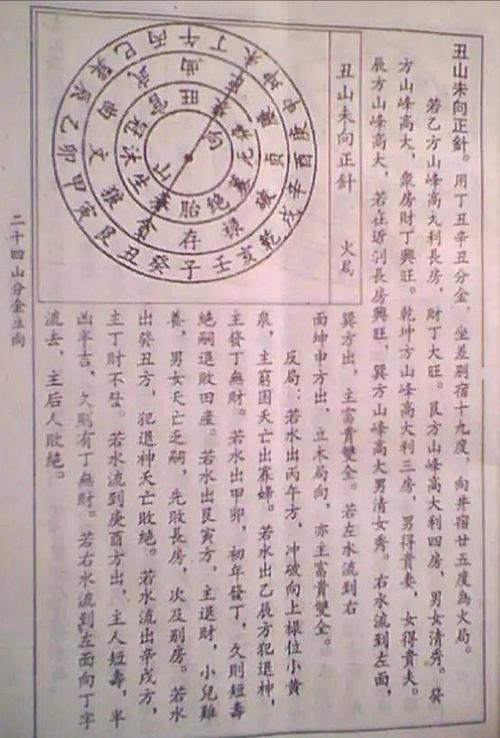 丑山未向正針。用丁丑辛丑分金，坐差別宿十九度，向井宿廿五度為火局。
若乙方山峰高大利長房，財丁大旺。艮方山峰高大利四房，男女清秀。癸
方山峰高大，眾房財丁興旺。乾坤方山峰高大利三房，男得貴妻，女得貴夫。
辰方山峰高大，若在近則長房興旺，巽方山峰高大男清女秀。右水流到左面，
丑山未向正針
火局
巽方出，主富貴雙全。若左水流到右
面坤申方出，立木局向，亦主富貴雙全。
反局：若水出丙午方，冲破向上祿位小黄
泉，主窮困夭亡出寡婦。若水出乙辰方犯退神，
主發丁無財。若水出甲卯，初年發丁，久則短壽
絕嗣退敗田産。若水出艮寅方，主退財，小兒難
養，男女夭亡乏嗣，先敗長房，次及別房。若水
出癸丑方，犯退神夭亡敗絕。若水流出辛戌方，
主丁財不發。若水流到庚酉方出，主人短壽，半
凶半吉，久則有丁無財。若右水流到左面向丁字
流去，主后人敗絕。
丙午丁未坤申庚酉辛戌乾亥壬子癸丑艮寅甲卯乙辰巽巳
武曲文貞破祿存
旺官冠沐生養胎絕墓
向
二十四山分金立向